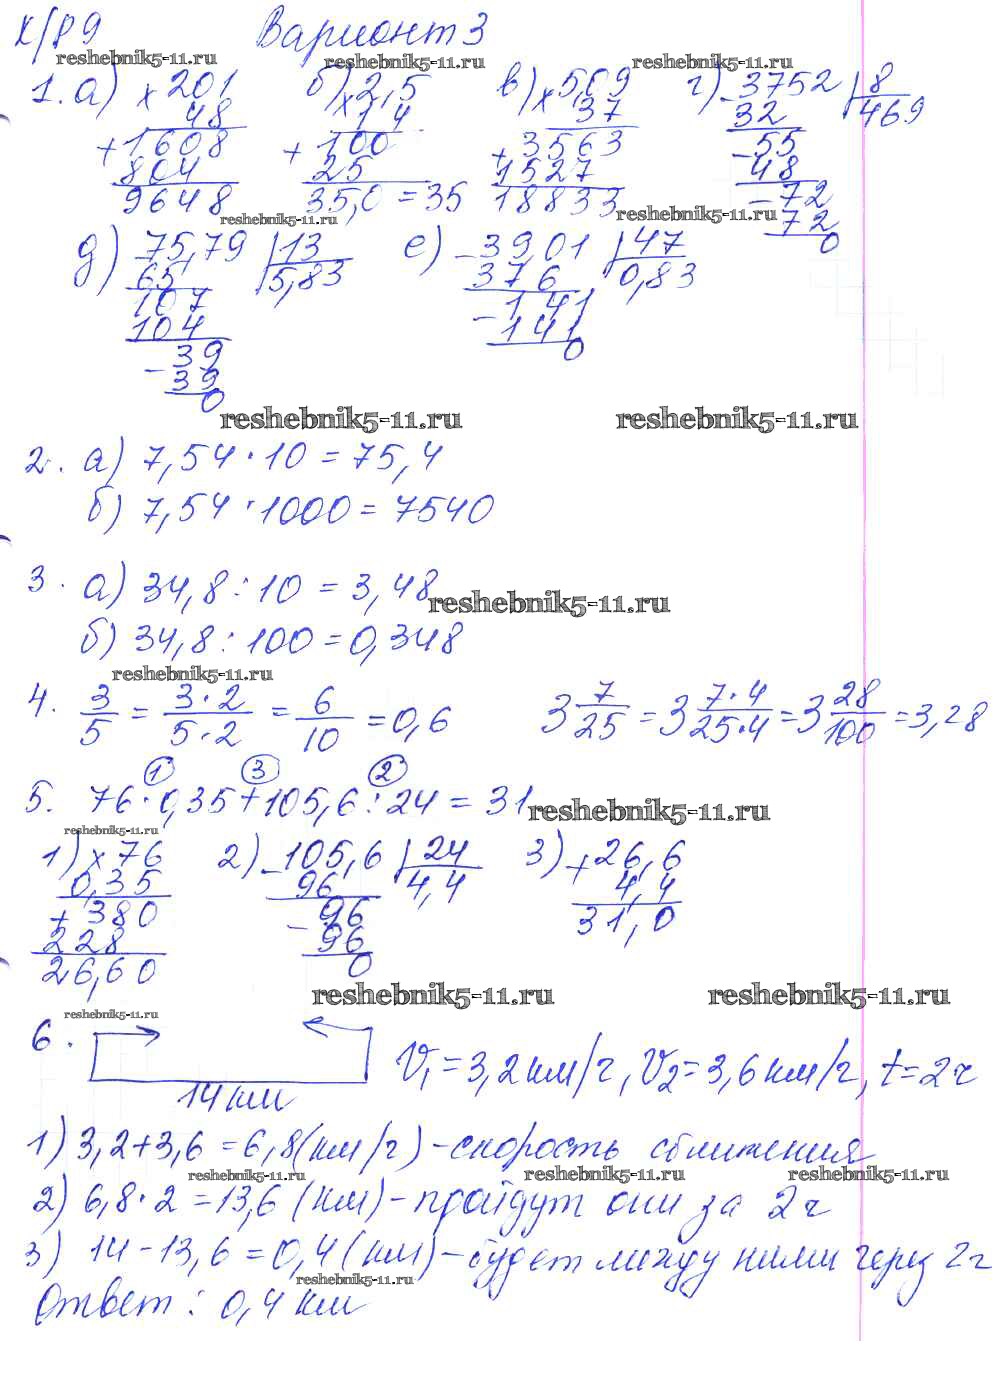 К/р 9 Вариант 3
reshebnik5-11.ru reshebnik5-11.ru reshebnik5-11.ru
1. а) × 201 б) × 2,5 в) × 5,09 г) - 3752 | 8
48 1,4 37 32 469
+ 1608 + 100 + 3563 - 55
804 25 1527 48
9648 35,0 = 35 18833 - 72
reshebnik5-11.ru reshebnik5-11.ru
72
0
д) 75,79 | 13 е) - 39,01 | 47
65 5,83 376 0,83
107 - 141
104 - 141
- 39 0
39
0
reshebnik5-11.ru reshebnik5-11.ru
2. а) 7,54 · 10 = 75,4
б) 7,54 · 1000 = 7540
3. а) 34,8 : 10 = 3,48
reshebnik5-11.ru
б) 34,8 : 100 = 0,348
reshebnik5-11.ru
4. 3/5 = 3·2/5·2 = 6/10 = 0,6 3 7/25 = 3 7·4/25·4 = 3 28/100 = 3,28
① ③ ②
5. 76 · 0,35 + 105,6 : 24 = 31
reshebnik5-11.ru
reshebnik5-11.ru
1) × 76 2) - 105,6 | 24 3) + 26,6
0,35 96 4,4 4,4
+ 380 - 96 31,0
228 96
26,60 0
reshebnik5-11.ru reshebnik5-11.ru
reshebnik5-11.ru
6. V₁ = 3,2 км/ч, V₂ = 3,6 км/ч, t = 2 ч
14 км
1) 3,2 + 3,6 = 6,8 (км/ч) - скорость сближения
reshebnik5-11.ru reshebnik5-11.ru reshebnik5-11.ru
2) 6,8 · 2 = 13,6 (км) - пройдут они за 2 ч
3) 14 - 13,6 = 0,4 (км) - будет между ними через 2 ч
reshebnik5-11.ru
Ответ: 0,4 км